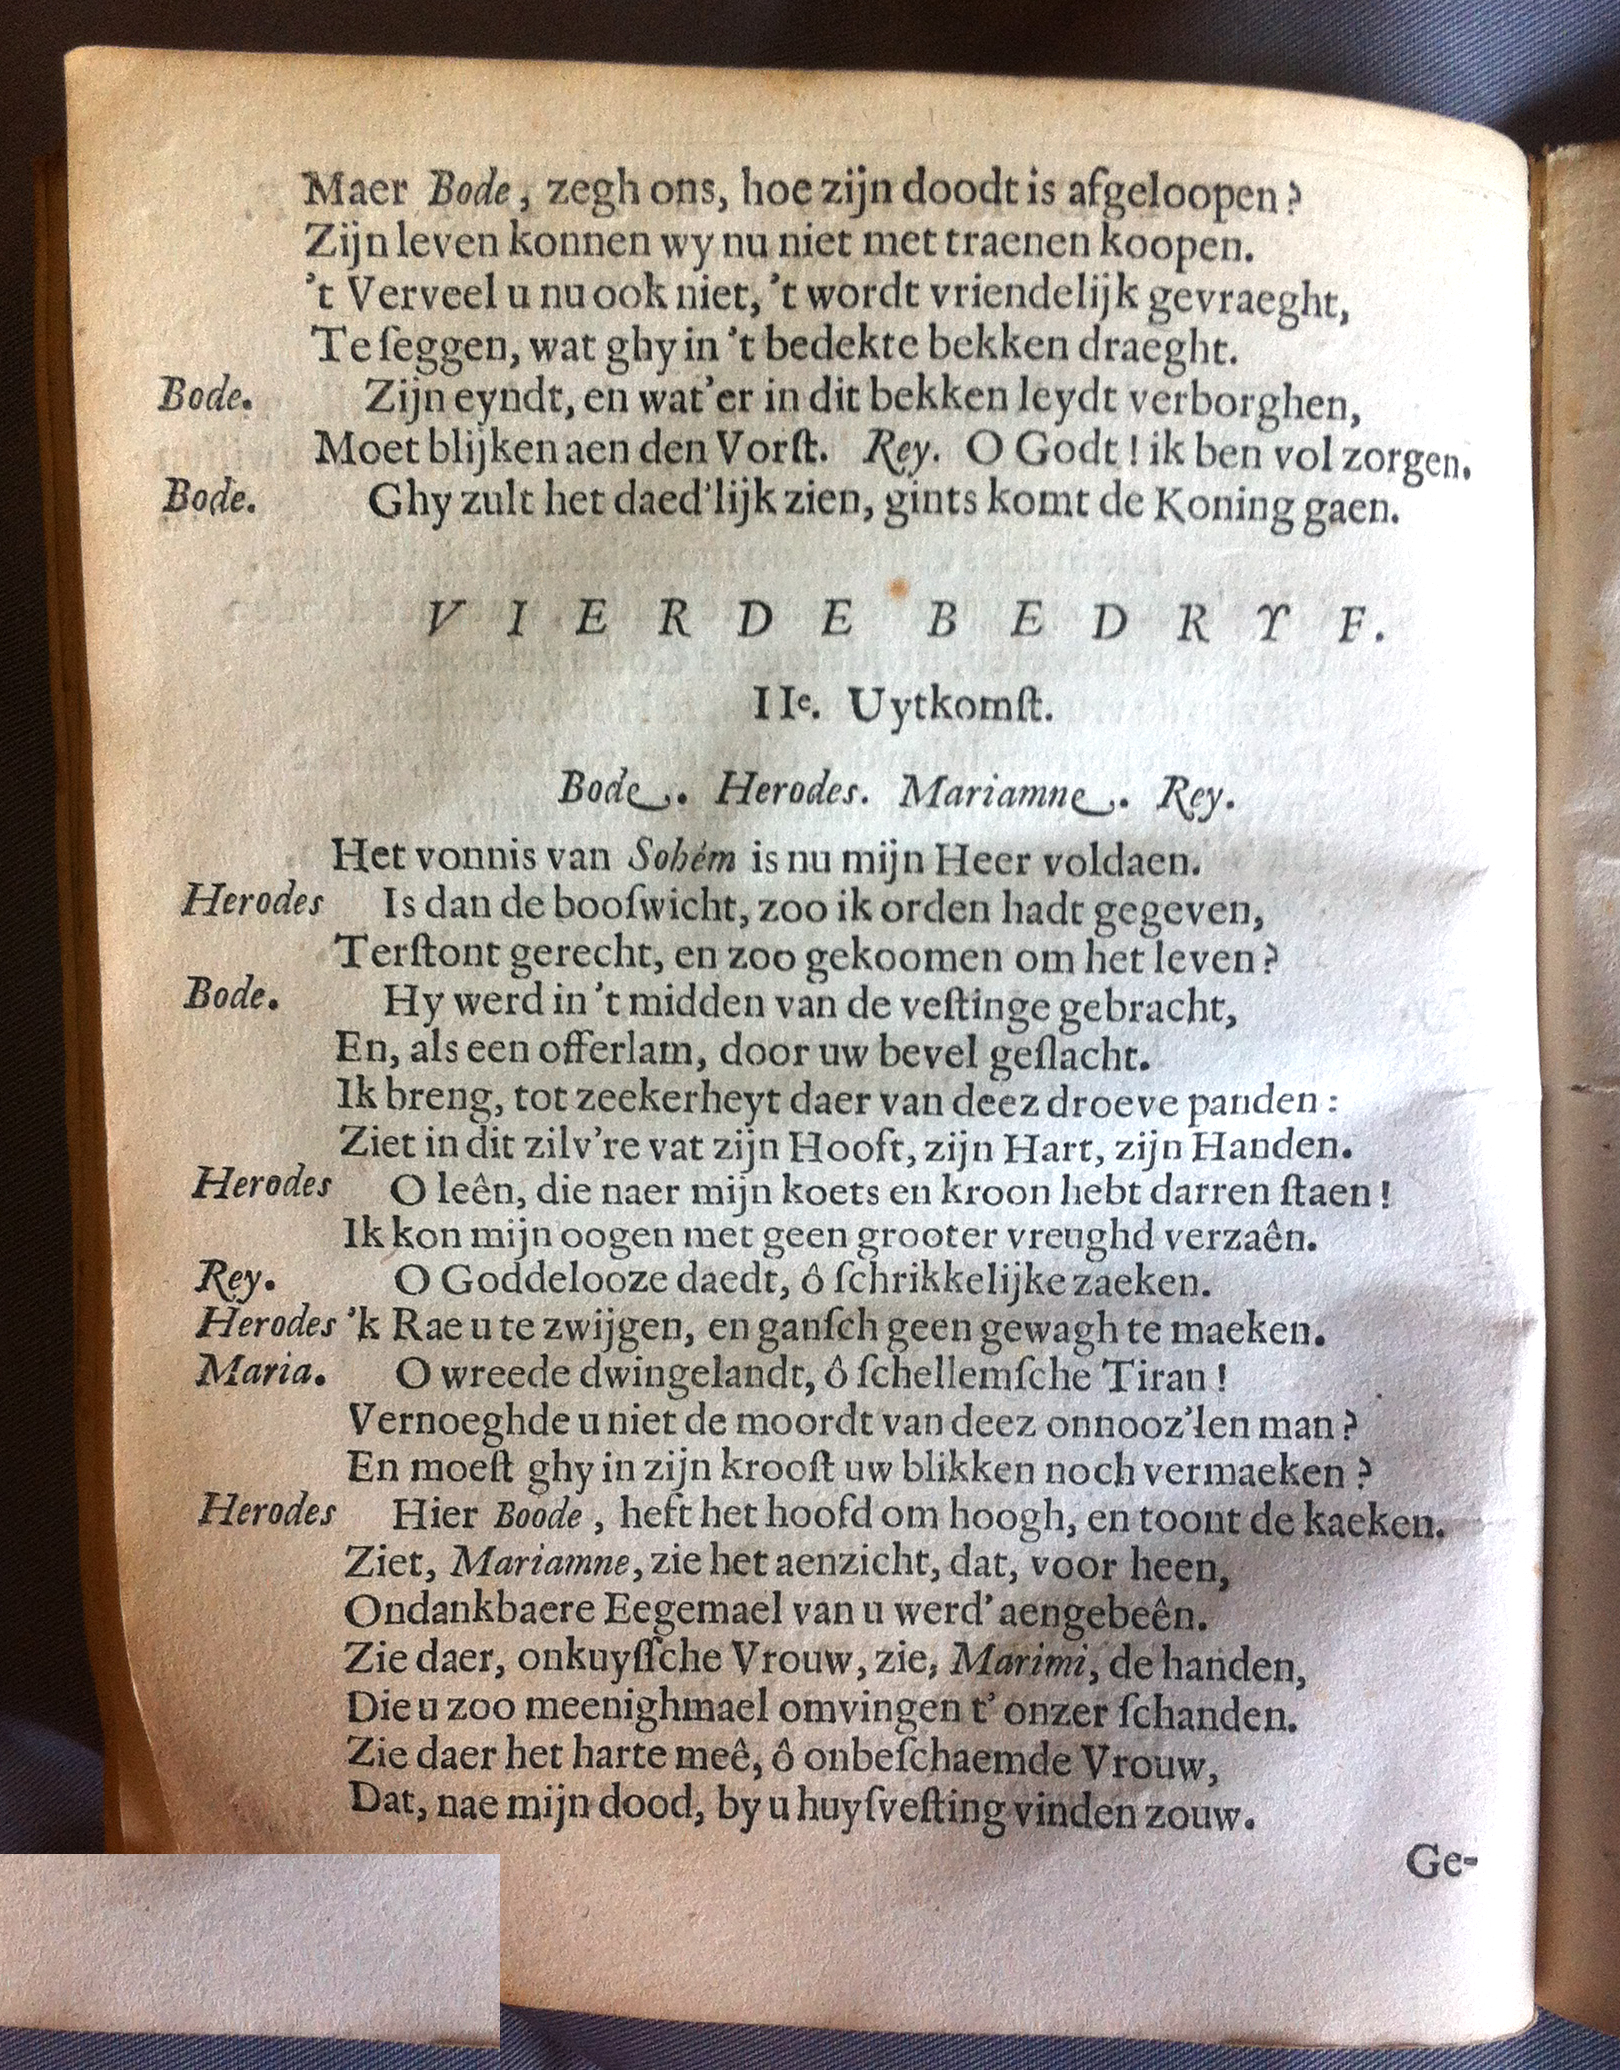 Maer Bode, zegh ons, hoe zijn doodt is afgeloopen?
Zijn leven konnen wy nu niet met traenen koopen.
't Verveel u nu ook niet, 't wordt vriendelijk gevraeght,
Te ſeggen, wat ghy in 't bedekte bekken draeght.
Bode. Zijn eyndt, en wat'er in dit bekken leydt verborghen,
Moet blijken aen den Vorſt. Rey. O Godt! ik ben vol zorgen.
Bode. Ghy zult het daed'lijk zien, gints komt de Koning gaen.
VIERDE BEDRYF.
IIe. Uytkomſt.
Bode. Herodes. Mariamne. Rey.
Het vonnis van Sohém is nu mijn Heer voldaen.
Herodes Is dan de booſwicht, zoo ik orden hadt gegeven,
Terſtont gerecht, en zoo gekoomen om het leven?
Bode. Hy werd in 't midden van de veſtinge gebracht,
En, als een offerlam, door uw bevel geſlacht.
Ik breng, tot zeekerheyt daer van deez droeve panden:
Ziet in dit zilv're vat zijn Hooft, zijn Hart, zijn Handen.
Herodes O leên, die naer mijn koets en kroon hebt darren ſtaen!
Ik kon mijn oogen met geen grooter vreughd verzaên.
Rey. O Goddelooze daedt, ô ſchrikkelijke zaeken.
Herodes 'k Rae u te zwijgen, en ganſch geen gewagh te maeken.
Maria. O wreede dwingelandt, ô ſchellemſche Tiran!
Vernoeghde u niet de moordt van deez onnooz'len man?
En moeſt ghy in zijn krooſt uw blikken noch vermaeken?
Herodes Hier Boode, heft het hoofd om hoogh, en toont de kaeken.
Ziet, Mariamne, zie het aenzicht, dat, voor heen,
Ondankbaere Eegemael van u werd' aengebeên.
Zie daer, onkuyſſche Vrouw, zie, Marimi, de handen,
Die u zoo meenighmael omvingen t' onzer ſchanden.
Zie daer het harte meê, ô onbeſchaemde Vrouw,
Dat, nae mijn dood, by u huyſveſting vinden zouw.
Ge-